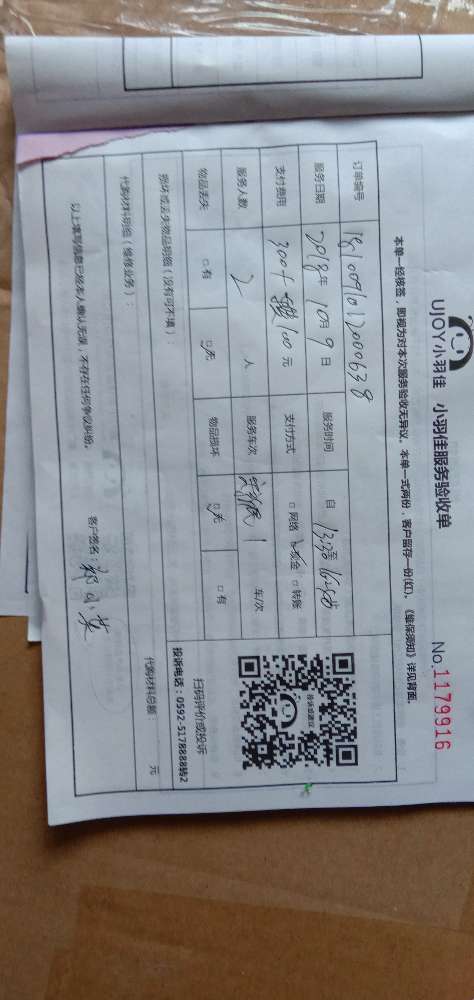 UJOY小羽佳 小羽佳服务验收单
No.1179916
本单一经核签，即视为对本次服务验收无异议。本单一式两份，客户留存一份(红)，《维保须知》详见背面。
订单编号 1810091012000638
服务日期 2018年10月9日 服务时间 自
支付费用 300+ 100元 支付方式 □网络 □现金 □转账
服务人数 2 人 服务车次 1 车/次
物品丢失 □有 □无 物品损坏 □无 □有
扫码评价或投诉
投诉电话：0592-5178888转2
投诉或建议
损坏或丢失物品明细（没有可不填）：
代购材料明细（维修业务）： 代购材料总额： 元
以上填写信息已经本人确认无误，不存在任何争议纠纷。
客户签名：郑小英